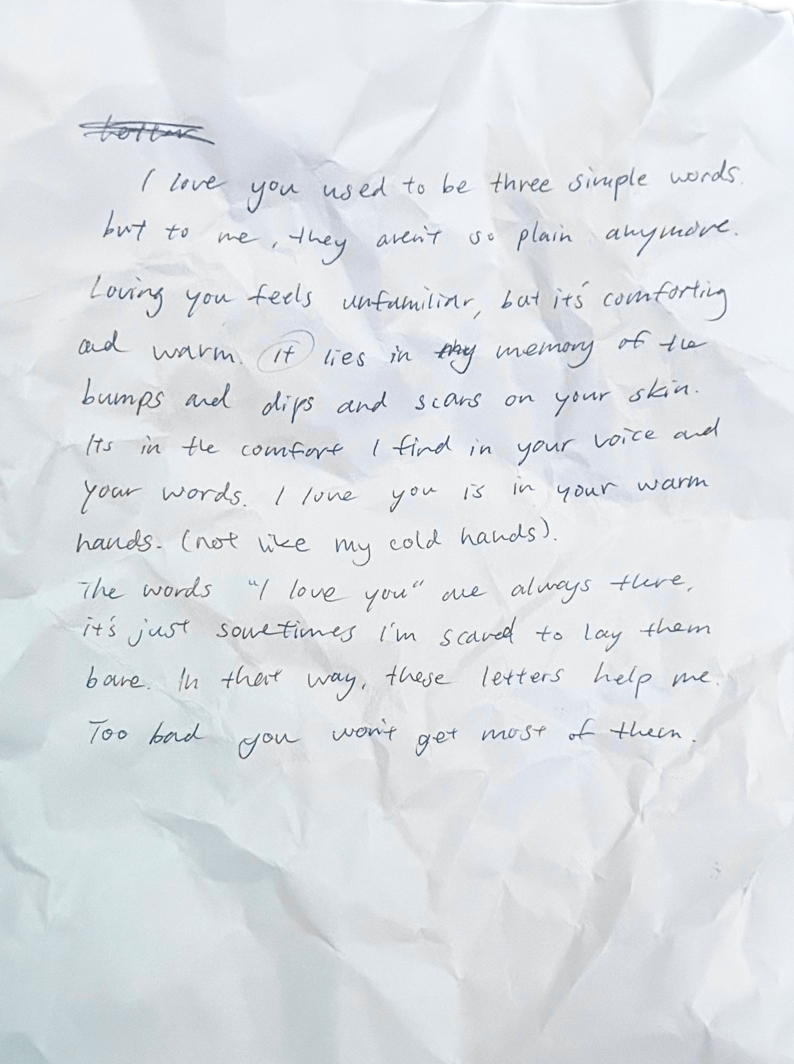 I love you used to be three simple words.
but to me, they aren't so plain anymore.
Loving you feels unfamiliar, but it's comforting
and warm. it lies in my memory of the
bumps and dips and scars on your skin.
Its in the comfort I find in your voice and
your words. I love you is in your warm
hands. (not like my cold hands).
The words "I love you" are always there,
it's just sometimes I'm scared to lay them
bare. In that way, these letters help me.
Too bad you won't get most of them.